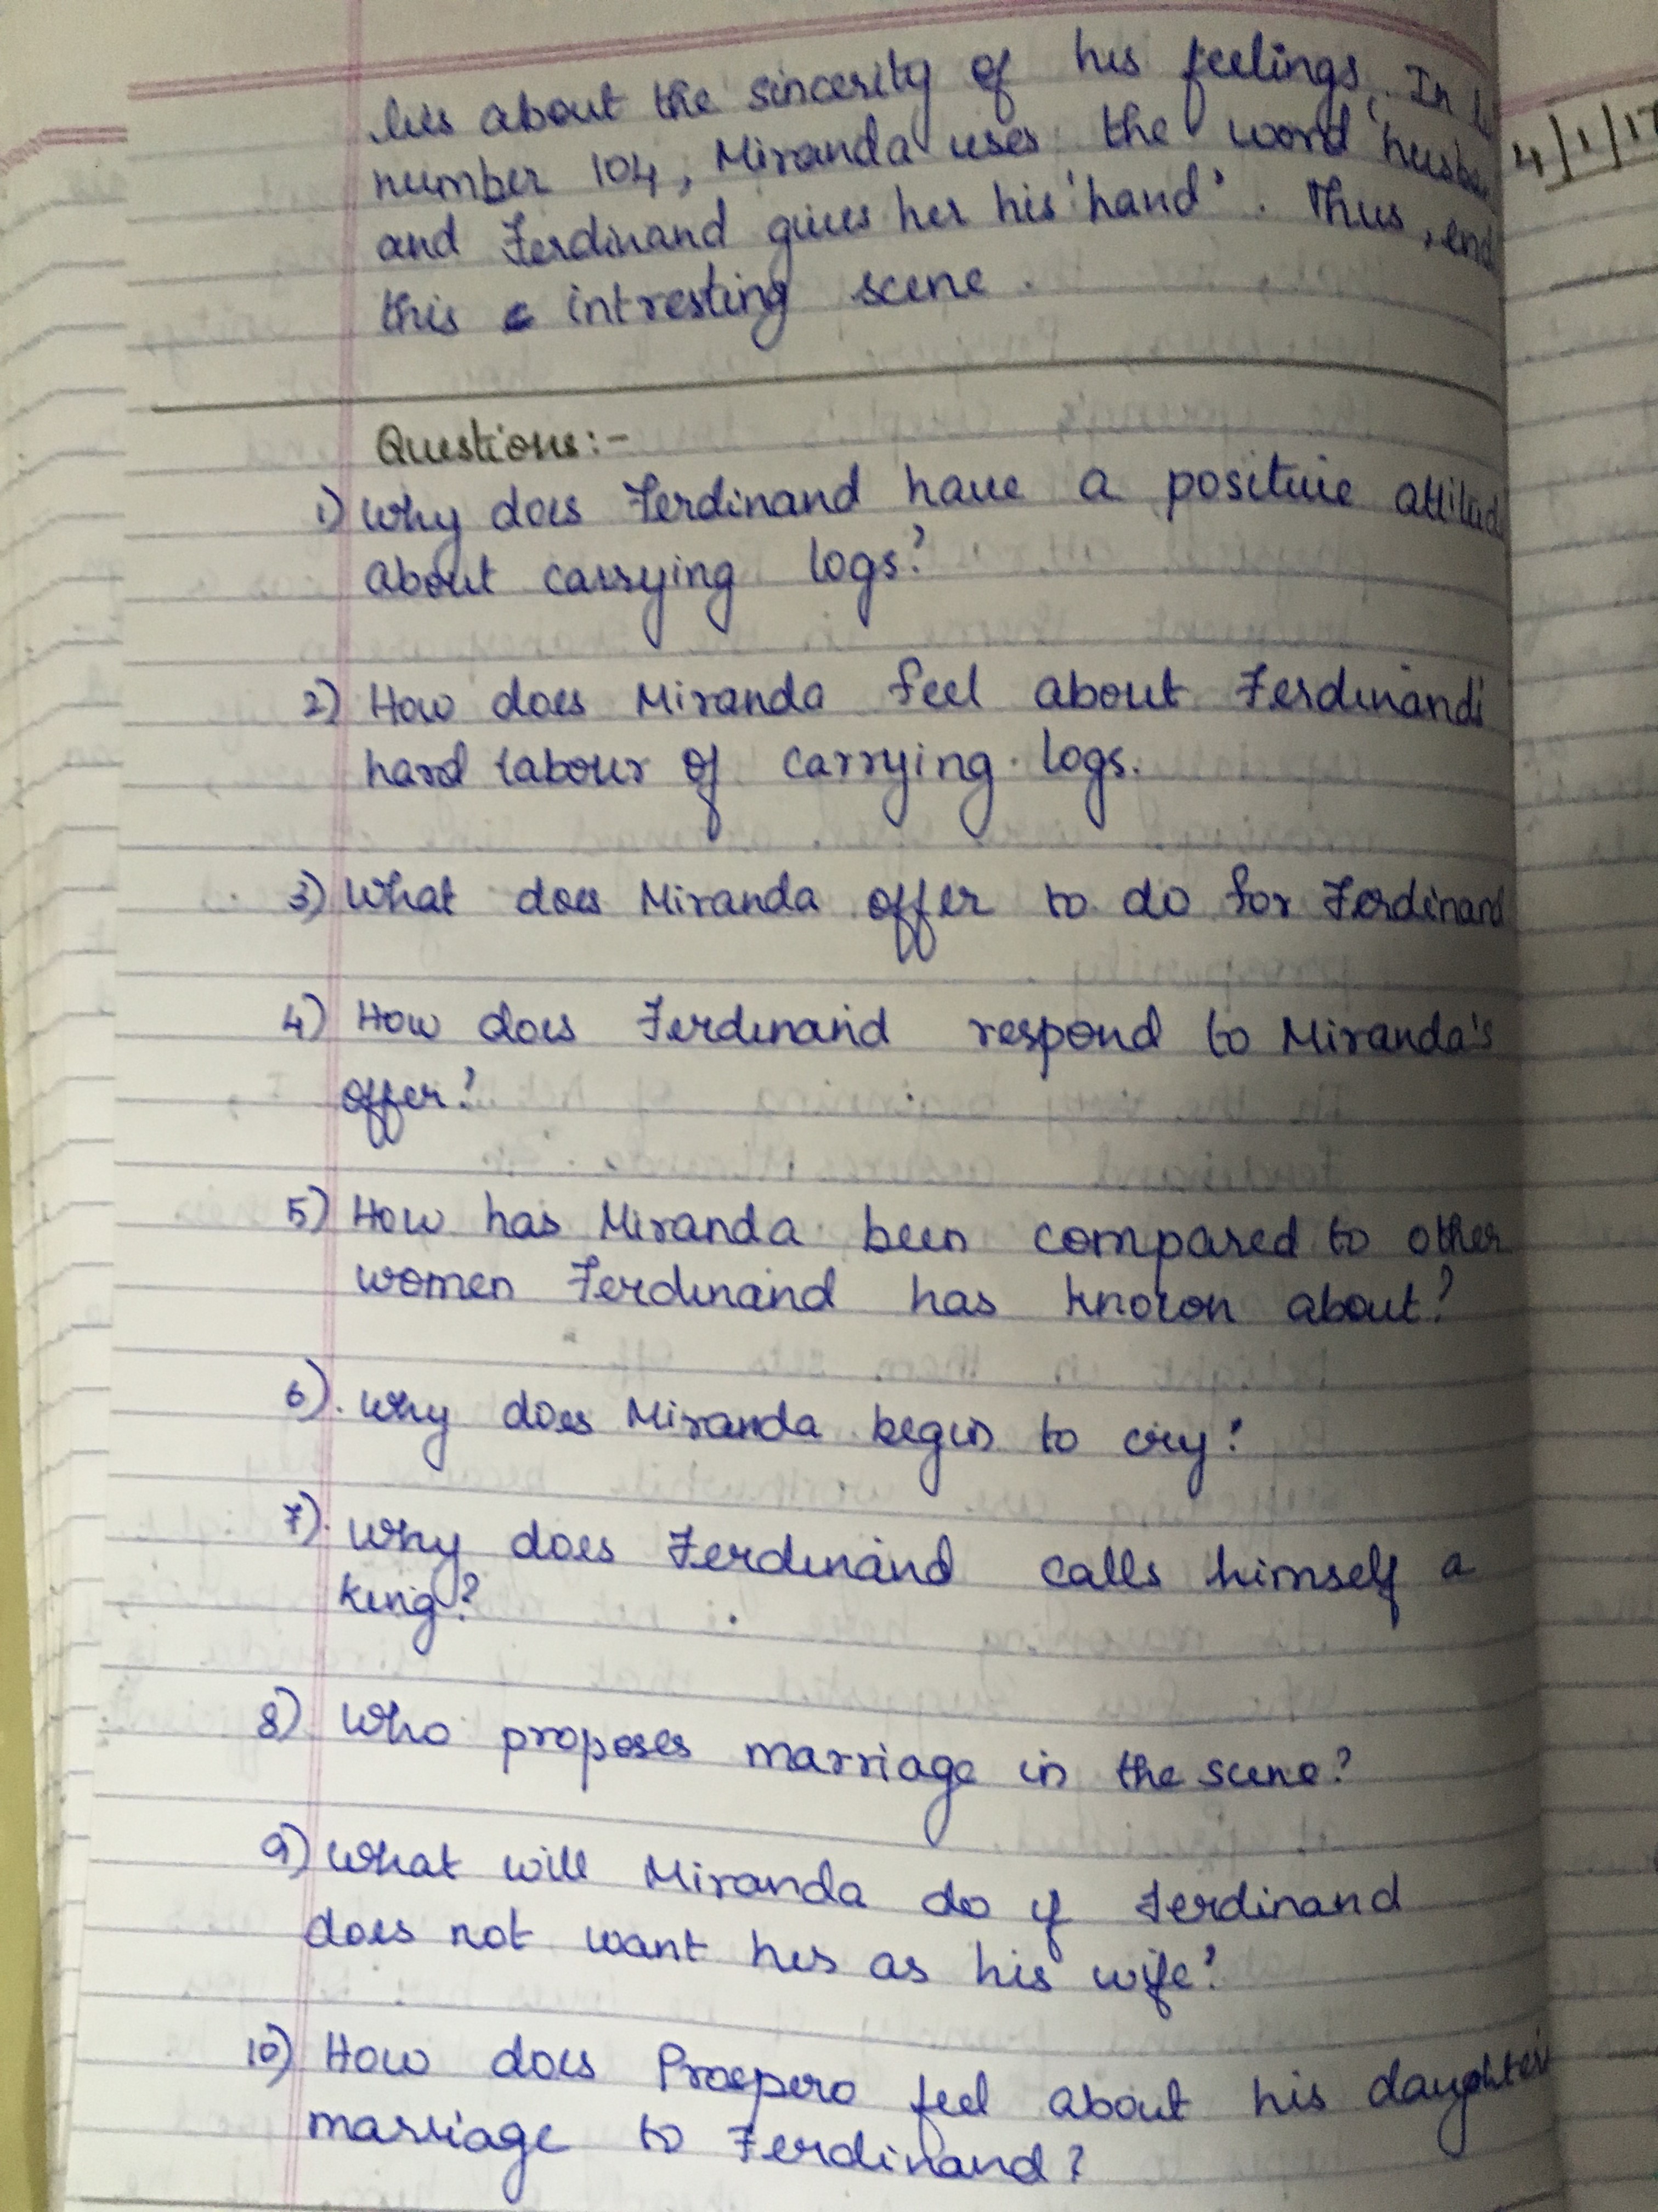 her about the sincerity of his feelings. In
number 104, Miranda uses the word 'husba
and Ferdinand gives her his 'hand'. Thus, end
this intresting scene.
4/1/17
Questions:-
1) Why does Ferdinand have a positive attitud
about carrying logs?
2) How does Miranda feel about Ferdinand's
hard labour of carrying logs.
3) What does Miranda offer to do for Ferdinand
4) How does Ferdinand respond to Miranda's
offer?
5) How has Miranda been compared to other
women Ferdinand has known about?
6). Why does Miranda begin to cry?
7). Why does Ferdinand calls himself a
king?
8) Who proposes marriage in the scene?
9) What will Miranda do if Ferdinand
does not want her as his wife?
10) How does Prospero feel about his daughter's
marriage to Ferdinand?